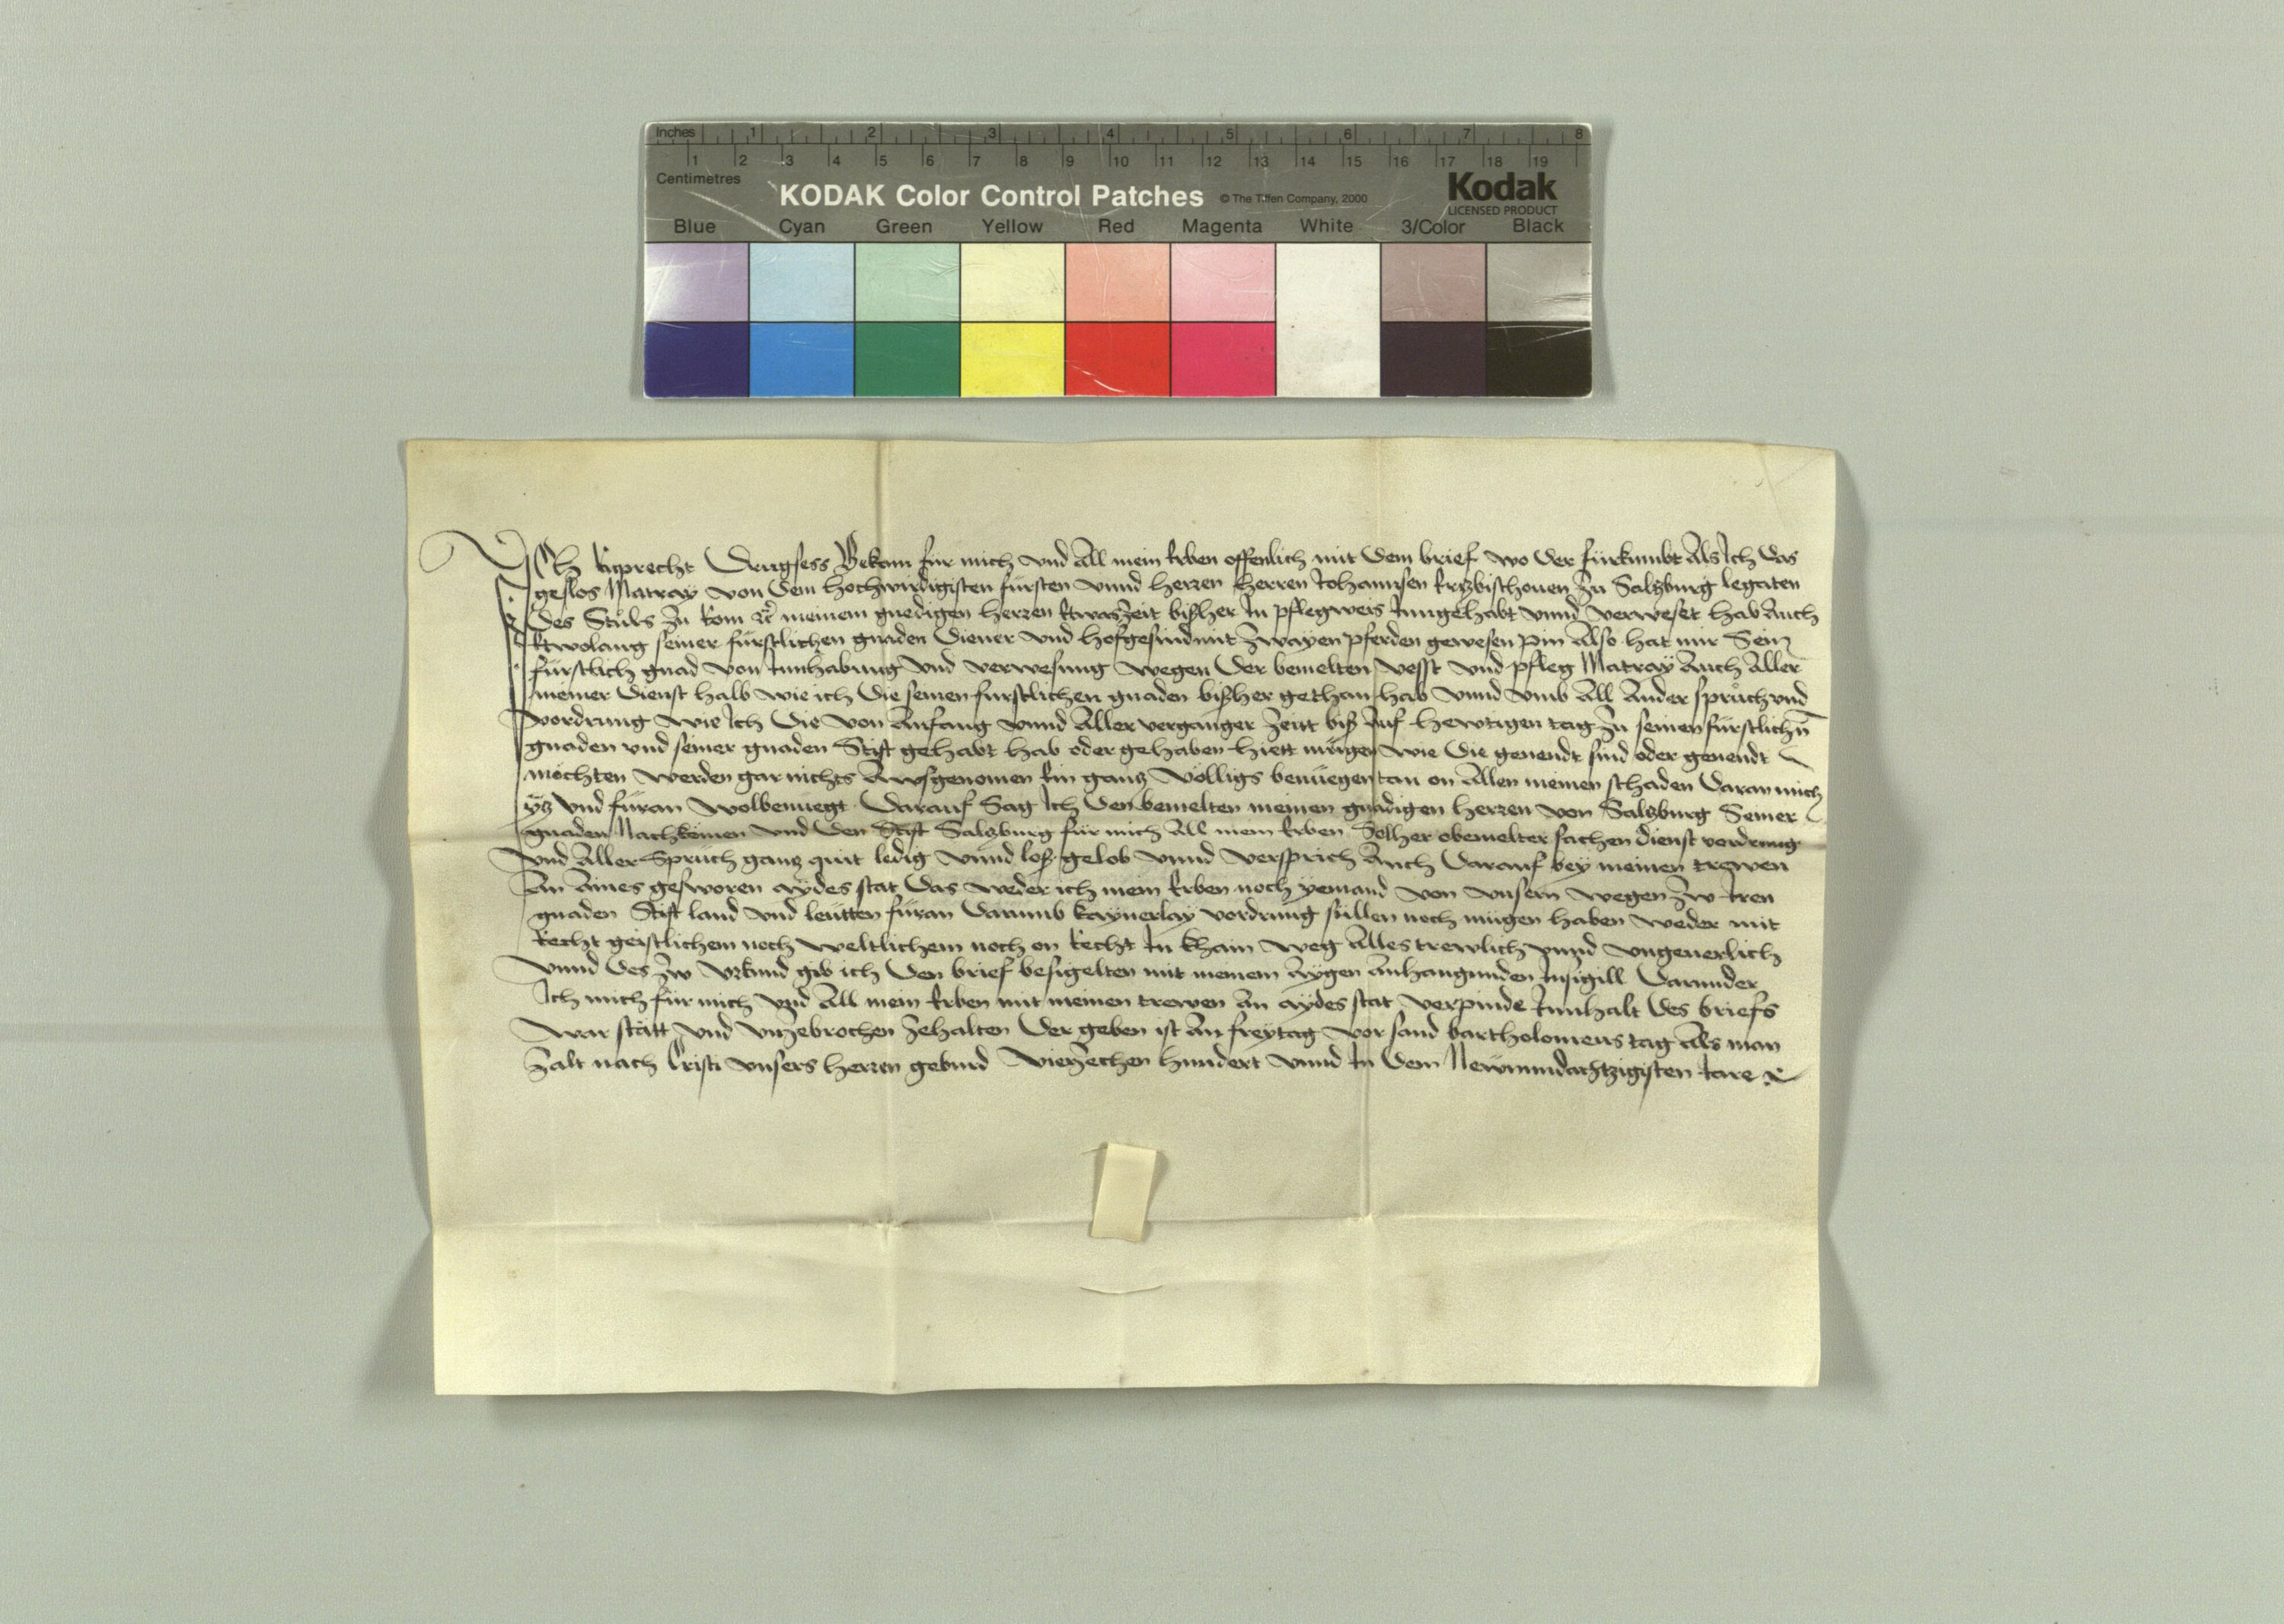 Inches 1 2 3 4 5 6 7 8
1 2 3 4 5 6 7 8 9 10 11 12 13 14 15 16 17 18 19
Centimetres
KODAK Color Control Patches © The Tiffen Company, 2000 Kodak
LICENSED PRODUCT
Blue Cyan Green Yellow Red Magenta White 3/Color Black
Ich Ruprecht Drugsess Bekenn für mich vnd All mein Erben offenlich mit dem brief wo der fürkumbt Als Ich das
geslos Matray von dem hochwirdigisten fürsten vnnd herren herren Johannsen Ertzbischouen zu Salzburg legaten
des Stuls zu Rom etc meinem gnedigen herren Etwaszeit bisher In pflegweis Inngehabt vnnd verweset hab Auch
Etwolang seiner fürstlichen gnaden diener vnd hofgesind mit zwayen pferden gewesen pin Also hat mir Sein
fürstlich gnad von Innhabung vnd verwesung wegen der bemelten vesst vnd pfleg Matray Auch Aller
meiner dienst halb wie ich die seinen fürstlichen gnaden bisher gethan hab vnnd vmb All Ander sprüch vnd
vordrung wie Ich die von Anfang vnnd Aller verganger Zeitt biß Auf hewtigen tag zu seinen fürstlichn
gnaden vnd seiner gnaden Stift gehabt hab oder gehaben hiett mügen wie die genendt sind oder genendt
möchten werden gar nichts Awsgenomen Ein gantz völligs benüegen tan on Allen meinen schaden daran mich
ytz vnd füran wolbenuegt Darauf Sag Ich den bemelten meinen gnädigen herren von Salzburg Seiner
gnaden Nachkömen vnd den Stift Salzburg für mich All mein Erben Solher obemelter sachen dienst vordrung
vnd Aller Sprüch gantz quit ledig vnnd loß gelob vnnd versprich Auch darauf bey meinen trewen
An Aines gesworen aydes stat das weder ich mein Erben noch yemand von vnsern wegen zw Iren
gnaden Stift land vnd leütten füran darumb kaynerlay vordrung süllen noch mügen haben weder mit
Recht geistlichem noch weltlichem noch on Recht In khain weg Alles trewlich vnnd vngeuerlich
vnnd des zw vrkund gib ich den brief besigelten mit meinem Aygen Anhangunden Insigill darunder
Ich mich für mich vnd All mein Erben mit meinen trewen An aydes stat verpinde Innhalt des briefs
war stätt vnd vnzebrochen zehalten Der geben ist An freytag vor sand bartholomeus tag Als man
zalt nach Cristi vnsers herren geburd vierzechen hundert vnnd In dem Newnundachtzigisten Jare